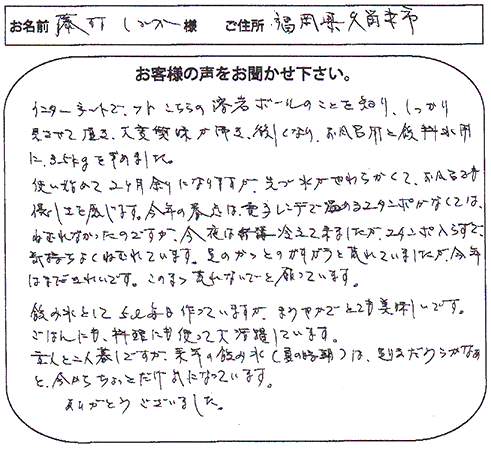 お名前 藤村 様 ご住所 福岡県久留米市
お客様の声をお聞かせ下さい。
インターネットで、フト こちらの溶岩ボールのことを知り、しっかり
見させて頂き、大変興味が湧き、欲しくなり、お風呂用と飲料水用
に、3.5kgを求めました。
使い始めて2ヶ月余りになりますが、先づ水がやわらかくて、お風呂も
優しさを感じます。今年の春迄は、電子レンジで温めるユタンポがなくては、
ねむれなかったのですが、今夜は 冷えて来ましたが、ユタンポ入らずで、
気持ちよくねむれています。足のかかとのガサガサと荒れていましたが、今年
はまだきれいです。このまゝ荒れないでと願っています。
飲み水として5ℓ毎日作っていますが、まろやかでとても美味しいです。
ごはんにも、料理にも使って大活躍しています。
主人と二人暮しですが、来年の飲み水(夏の時期)は、足りるだろうかなあ
と、今からちょっとだけ気になっています。
ありがとうございました。